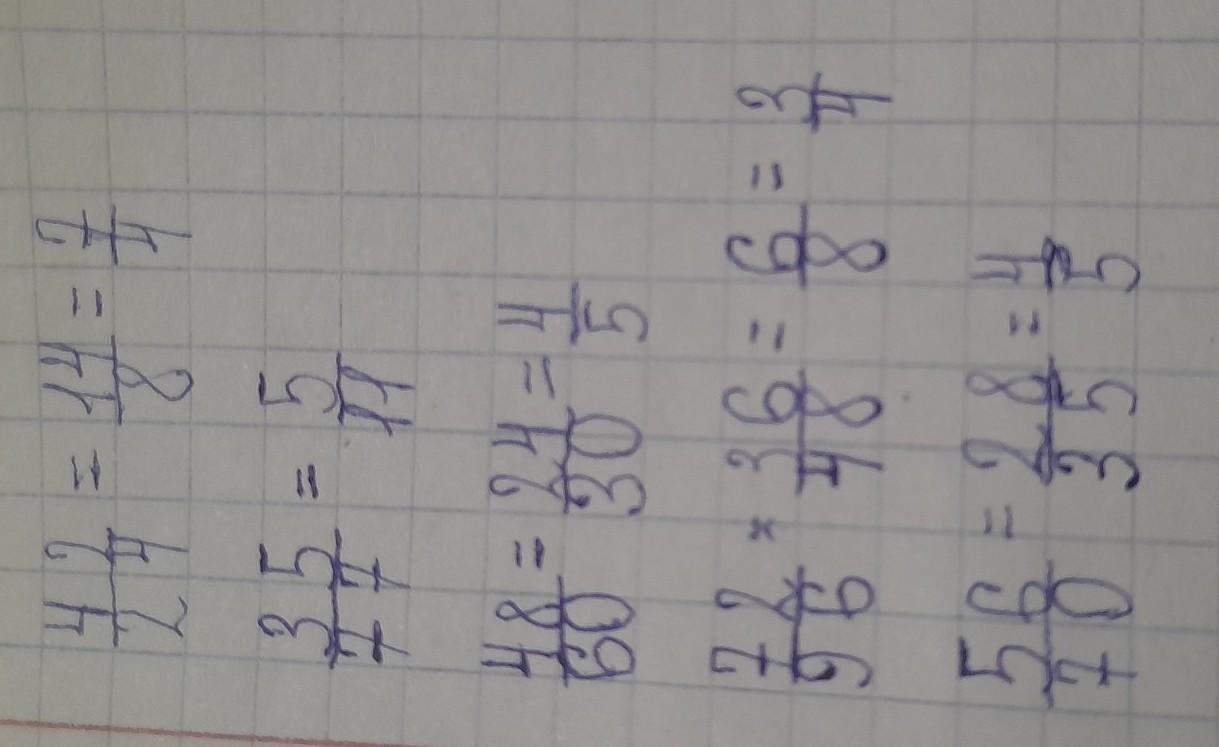 42/24 = 14/8 = 7/4
35/77 = 5/11
48/60 = 24/30 = 4/5
72/96 = 36/48 = 6/8 = 3/4
56/70 = 28/35 = 4/5